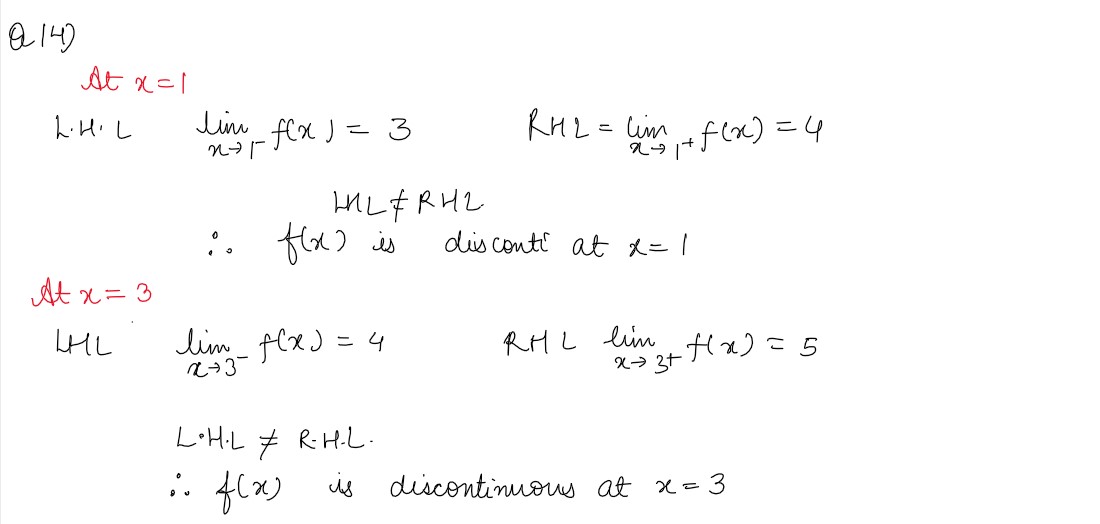 Q 14)
At x=1
L.H.L lim x→1⁻ f(x) = 3 RHL = lim x→1⁺ f(x) = 4
LHL ≠ RHL
∴ f(x) is disconti at x=1
At x = 3
LHL lim x→3⁻ f(x) = 4 RHL lim x→3⁺ f(x) = 5
L.H.L ≠ R.H.L.
∴ f(x) is discontinuous at x = 3